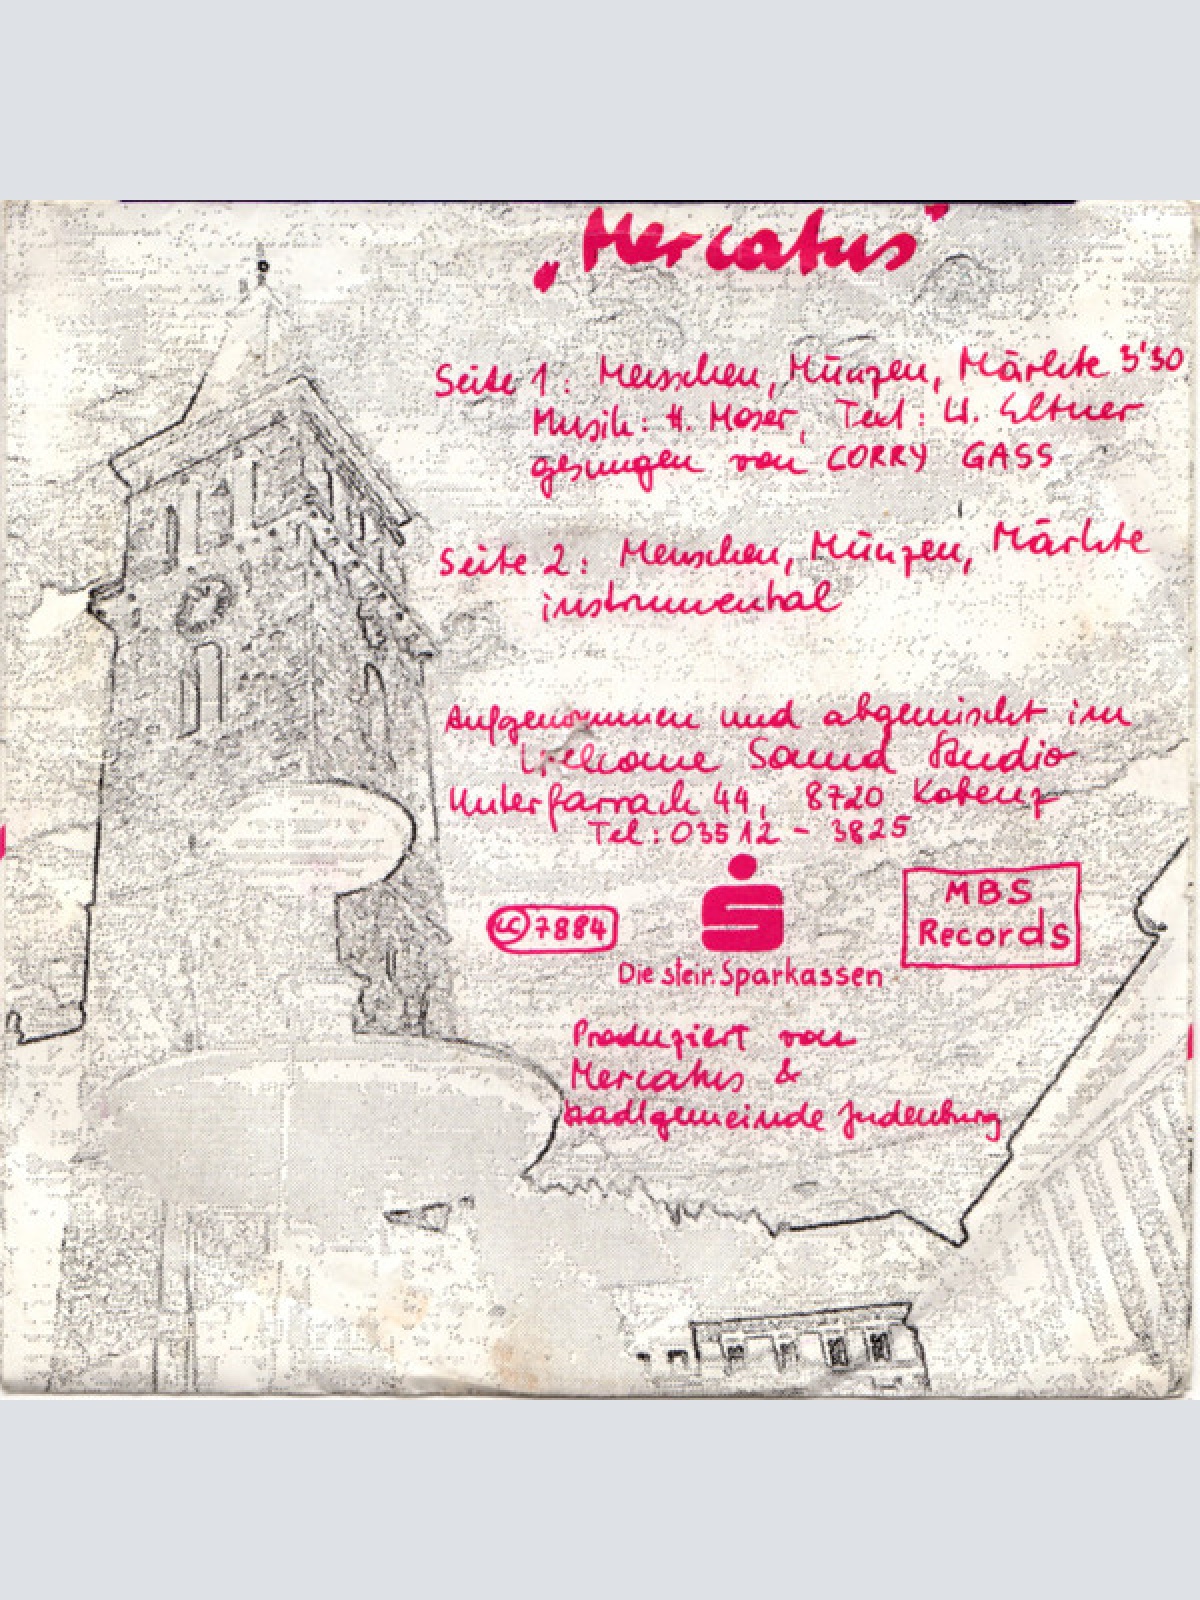 „Mercatus"
Seite 1: Menschen, Münzen, Märkte 3'30
Musik: H. Moser, Text: W. Eltner
gesungen von CORRY GASS
Seite 2: Menschen, Münzen, Märkte
instrumental
Aufgenommen und abgemischt im
Welcome Sound Studio
Unterfarrach 44, 8720 Kobenz
Tel: 03512 - 3825
LC 7884
MBS
Records
Die steir. Sparkassen
Produziert von
Mercatus &
Stadtgemeinde Judenburg